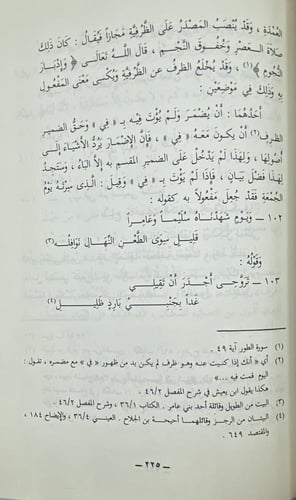 العُمْدَةِ، وَقَدْ يُنْصَبُ المَصْدَرُ عَلَى الظَّرْفِيَّةِ مَجَازاً فَيُقَالُ : كَانَ ذَلِكَ
صَلَاةَ العَصْرِ وَخُفُوقَ النَّجْمِ ، قَالَ اللَّهُ تَعَالَى ﴿ وَإِدْبَارَ
النُّجُومِ ﴾(١) ، وَقَدْ يُخْلَعُ الظرف عن الظَّرْفِيَّةِ وَيُكْسَى مَعْنَى المَفْعُولِ
بِهِ وَذَلِكَ فِي مَوْضِعَيْنِ :
أَحَدُهُمَا : أَنْ يُضْمَرَ وَلَمْ يُؤْتَ فِيهِ بـ « فِي » وَحَقُّ الضميرِ
الظرف(٢) أَنْ يَكُونَ مَعَهُ « فِي » ، فَإِنَّ الإِضْمَارَ يَرُدُّ الأَشْيَاءَ إِلَى
أُصُولِهَا ، وَلِهَذَا لَمْ يَدْخُلْ عَلَى الضميرِ المقسمِ به إِلاَّ البَاءُ ، وَسَتَجِدُ
لِهَذَا فَضْلَ بَيَانٍ ، فَإِذَا لَمْ يُؤْتَ بـ « فِي » وَقِيلَ : الَّذِي سِرْتُهُ يَوْمُ
الجُمْعَةِ فَقَدْ جُعِلَ مَفْعُولاً بِهِ كقوله :
١٠٢ ــ وَيَوْمٍ شَهِدْنَاهُ سُلَيْماً وَعَامِراً
قَلِيلٍ سِوَى الطَّعْنِ النِّهَالِ نَوَافِلُهْ(٣)
وَقَوْلُهُ :
١٠٣ ــ تَرَوَّحِي أَجْدَرَ أَنْ تَقِيلِي
غَداً بِجَنْبَيْ بَارِدٍ ظَلِيلِ(٤)
(١) سورة الطور آية ٤٩ .
(٢) أي « أنك إذا كنيت عنه وهو ظرف لم يكن بد من ظهور « في » مع مضمره ، تقول :
اليوم قمت فيه ... »
هكذا يقول ابن يعيش في شرح المفصل ٤٦/٢ .
(٣) البيت من الطويل وقائله أحد بني عامر . الكتاب ٣٦/١ ، وشرح المفصل ٤٦/٢
(٤) البيتان من الرجز وقائلهما أحيحة بن الجلاح . العيني ٣٦/٤ ، والإيضاح ١٨٤
والمقتصد ٦٤٩ .
ــ ٢٢٥ ــ